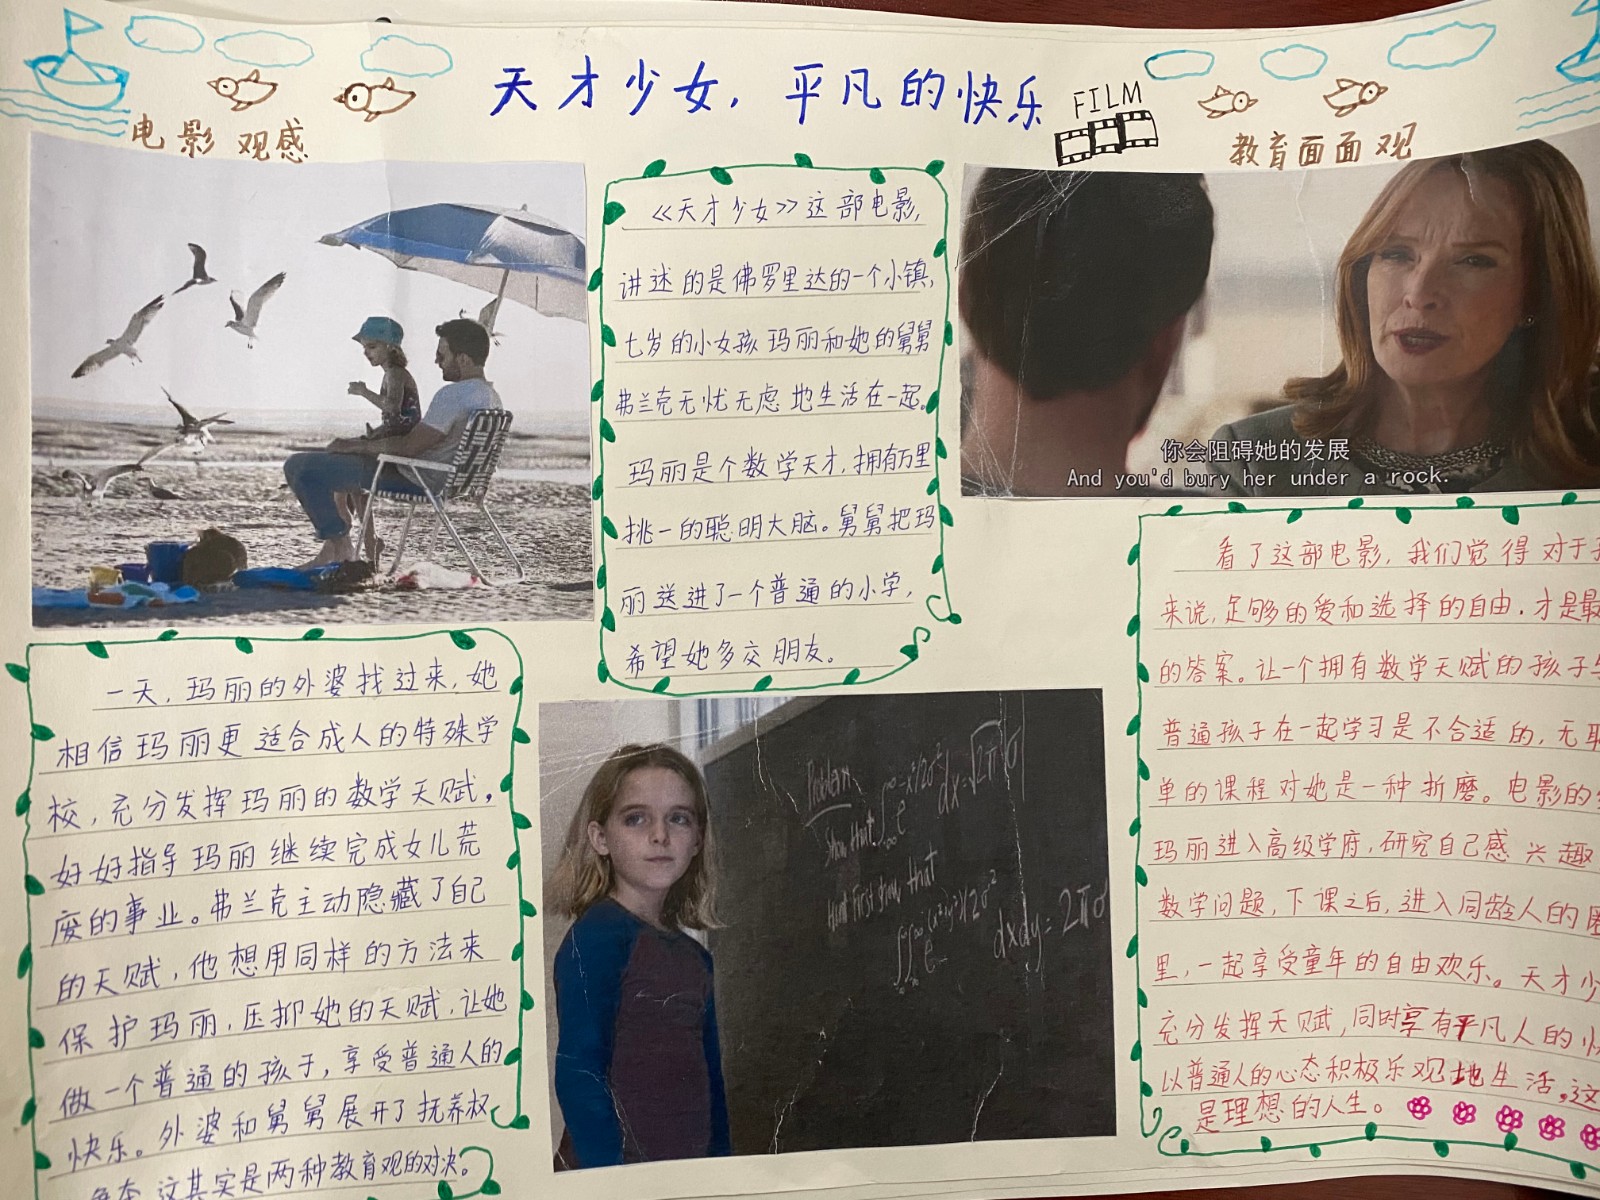 天才少女，平凡的快乐
FILM
电影观感
教育面面观
《天才少女》这部电影，
讲述的是佛罗里达的一个小镇，
七岁的小女孩玛丽和她的舅舅
弗兰克无忧无虑地生活在一起。
玛丽是个数学天才，拥有万里
挑一的聪明大脑。舅舅把玛
丽送进了一个普通的小学，
希望她多交朋友。
你会阻碍她的发展
And you'd bury her under a rock.
一天，玛丽的外婆找过来，她
相信玛丽更适合成人的特殊学
校，充分发挥玛丽的数学天赋，
好好指导玛丽继续完成女儿荒
废的事业。弗兰克主动隐藏了自己
的天赋，他想用同样的方法来
保护玛丽，压抑她的天赋，让她
做一个普通的孩子，享受普通人的
快乐。外婆和舅舅展开了抚养权
这其实是两种教育观的对决。
Problem
Show that ∫_{-∞}^{∞} e^{-x²/2σ²} dx = √2π σ
Hint first show that
∫_{-∞}^{∞}∫_{-∞}^{∞} e^{-(x²+y²)/2σ²} dxdy = 2πσ
看了这部电影，我们觉得对于
来说，足够的爱和选择的自由，才是最
的答案。让一个拥有数学天赋的孩子与
普通孩子在一起学习是不合适的，无
单的课程对她是一种折磨。电影的
玛丽进入高级学府，研究自己感兴趣
数学问题，下课之后，进入同龄人的
里，一起享受童年的自由欢乐。天才少
充分发挥天赋，同时享有平凡人的快
以普通人的心态积极乐观地生活，这
是理想的人生。